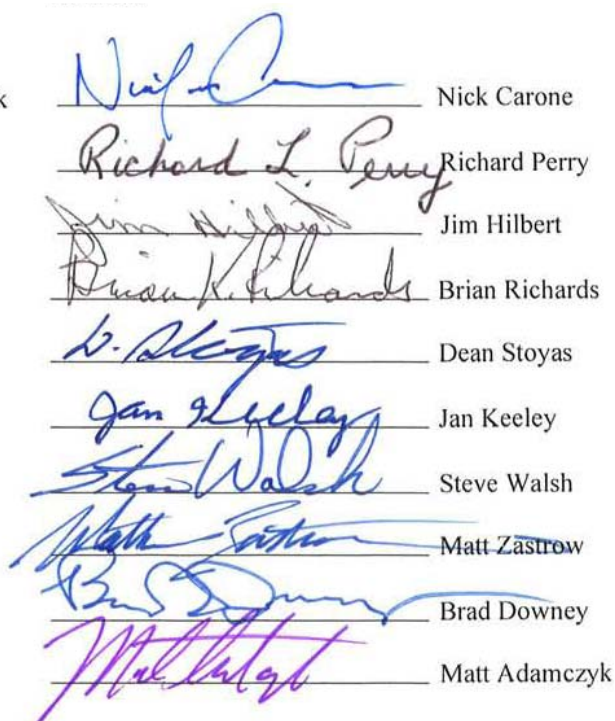 k Nick Carone
Richard L. Perry Richard Perry
Jim Hilbert Jim Hilbert
Brian K. Richards Brian Richards
D. Stoyas Dean Stoyas
Jan Keeley Jan Keeley
Steve Walsh Steve Walsh
Matt Zastrow
Brad Downey
Matt Adamczyk